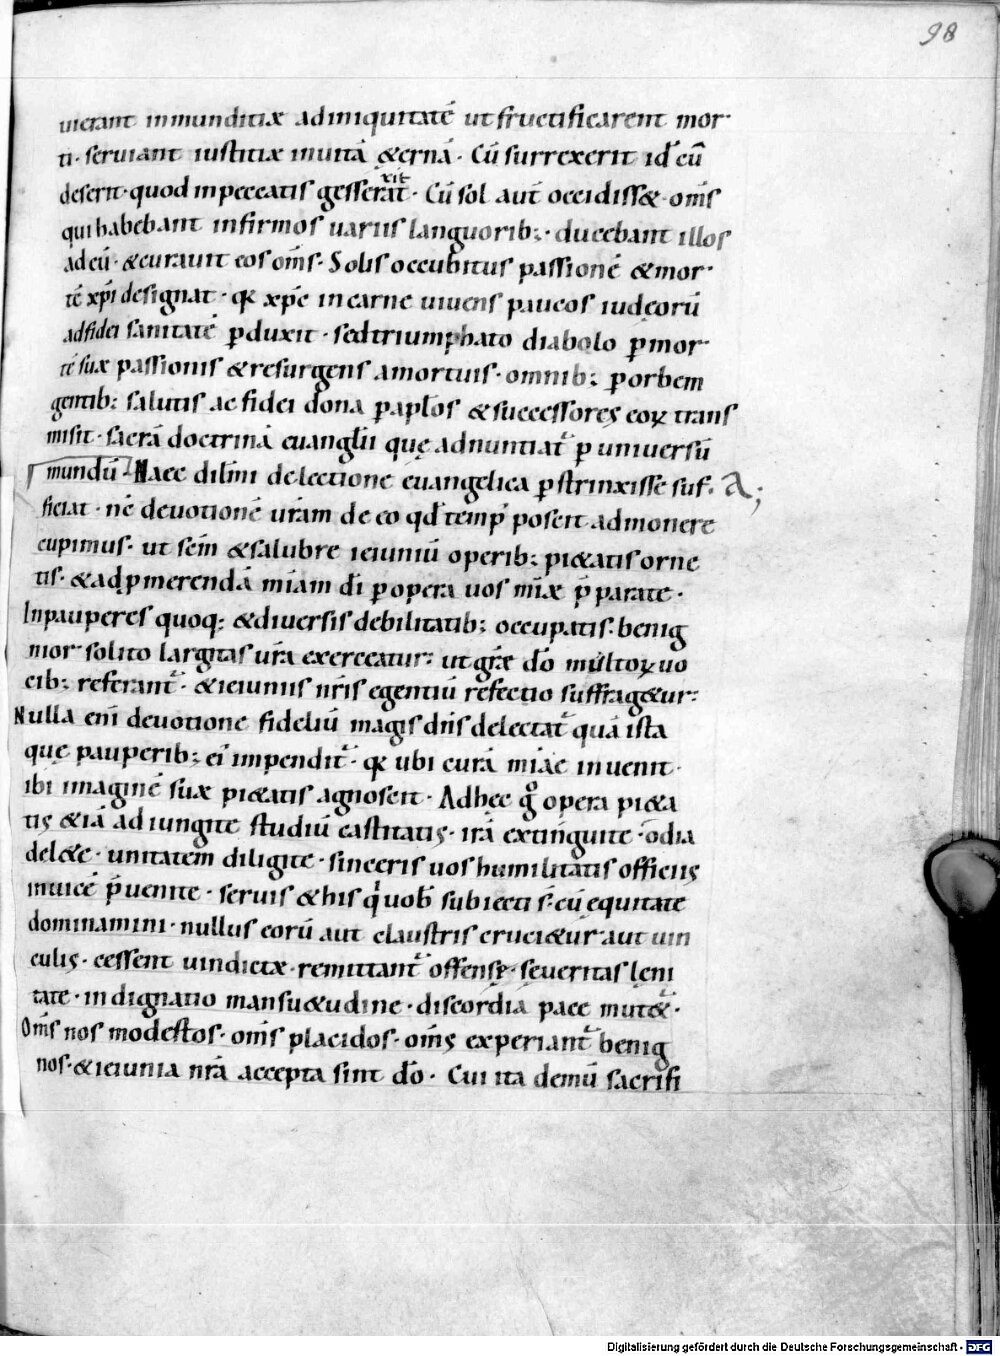 98
uierant inmunditiæ adiniquitatē ut fructificarent mor·
ti· seruiant iustitiæ inuitā &ernā· Cū surrexerit id̄ eū
deserit· quod inpeccatis gesserat xit· Cū sol aut̄ occidiss& om̄s
qui habebant infirmos uariis languorib;· ducebant illos
ad eū· &curauit eos om̄s· Solis occubitus passionē &mor·
tē xp̄i designat· qꝛ xp̄c incarne uiuens paucos iudeorū
adfidei sanitatē ꝑduxit· sedtriumphato diabolo ꝑ mor·
tē suæ passionis &resurgens amortuis· omnib; ꝑ orbem
gentib; salutis ac fidei dona ꝑ apl̄os &successores eoꝝ trans
misit· sacrā doctrinā euangl̄ii quę adnuntiat᷑ ꝑ uniuersū
mundū· Haec dil̄mi delectione euangelica ꝑstrinxisse suf· A;
ficiat· nē deuotionē ur̄am de eo qd̄ temp̄ poscit admonere
cupimus· ut sc̄m &salubre ieiuniū operib; pi&atis orne
tis· &adꝓmerendā mīam dī ꝑ opera uos mīæ p̄parate·
Inpauperes quoq; &diuersis debilitatib; occupatis· benig
nior solito largitas ur̄a exerceatur· ut gr̄æ dō multoꝝ uo
cib; referant᷑· &ieiuniis nr̄is egentiū refectio suffrag&ur·
Nulla enī deuotione fideliū magis dn̄s delectat᷑ quā ista
quę pauperib; ei impendit᷑· qꝛ ubi curā mīæ inuenit·
ibi imaginē suæ pi&atis agnoscit· Adhęc gͦ opera pi&a
tis &iā adiungite studiū castitatis· irā extinguite· odia
del&e· unitatem diligite· sinceris uos humilitatis officiis
inuicē p̄uenite· seruis &his qͥ uob̄ subiecti s̄· cū equitate
dominamini· nullus eorū aut claustris cruci&ur aut uin
culis· cessent uindictæ· remittant᷑ offensę· seueritas leni
tate· indignatio mansu&udine· discordia pace mut&᷑·
Om̄s nos modestos· om̄s placidos· om̄s experiant᷑ benig
nos· &ieiunia nr̄a accepta sint dō· Cui ita demū sacrifi
Digitalisierung gefördert durch die Deutsche Forschungsgemeinschaft - DFG